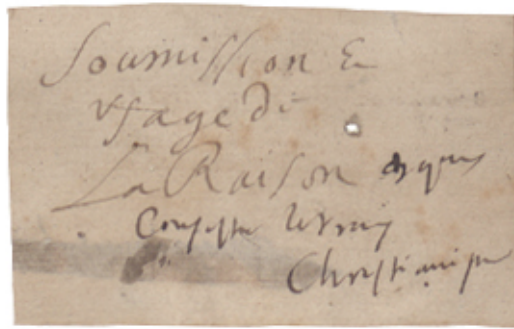 Soumission &
Vsage de
La Raison en quoy
Consiste le vray
Christianisme